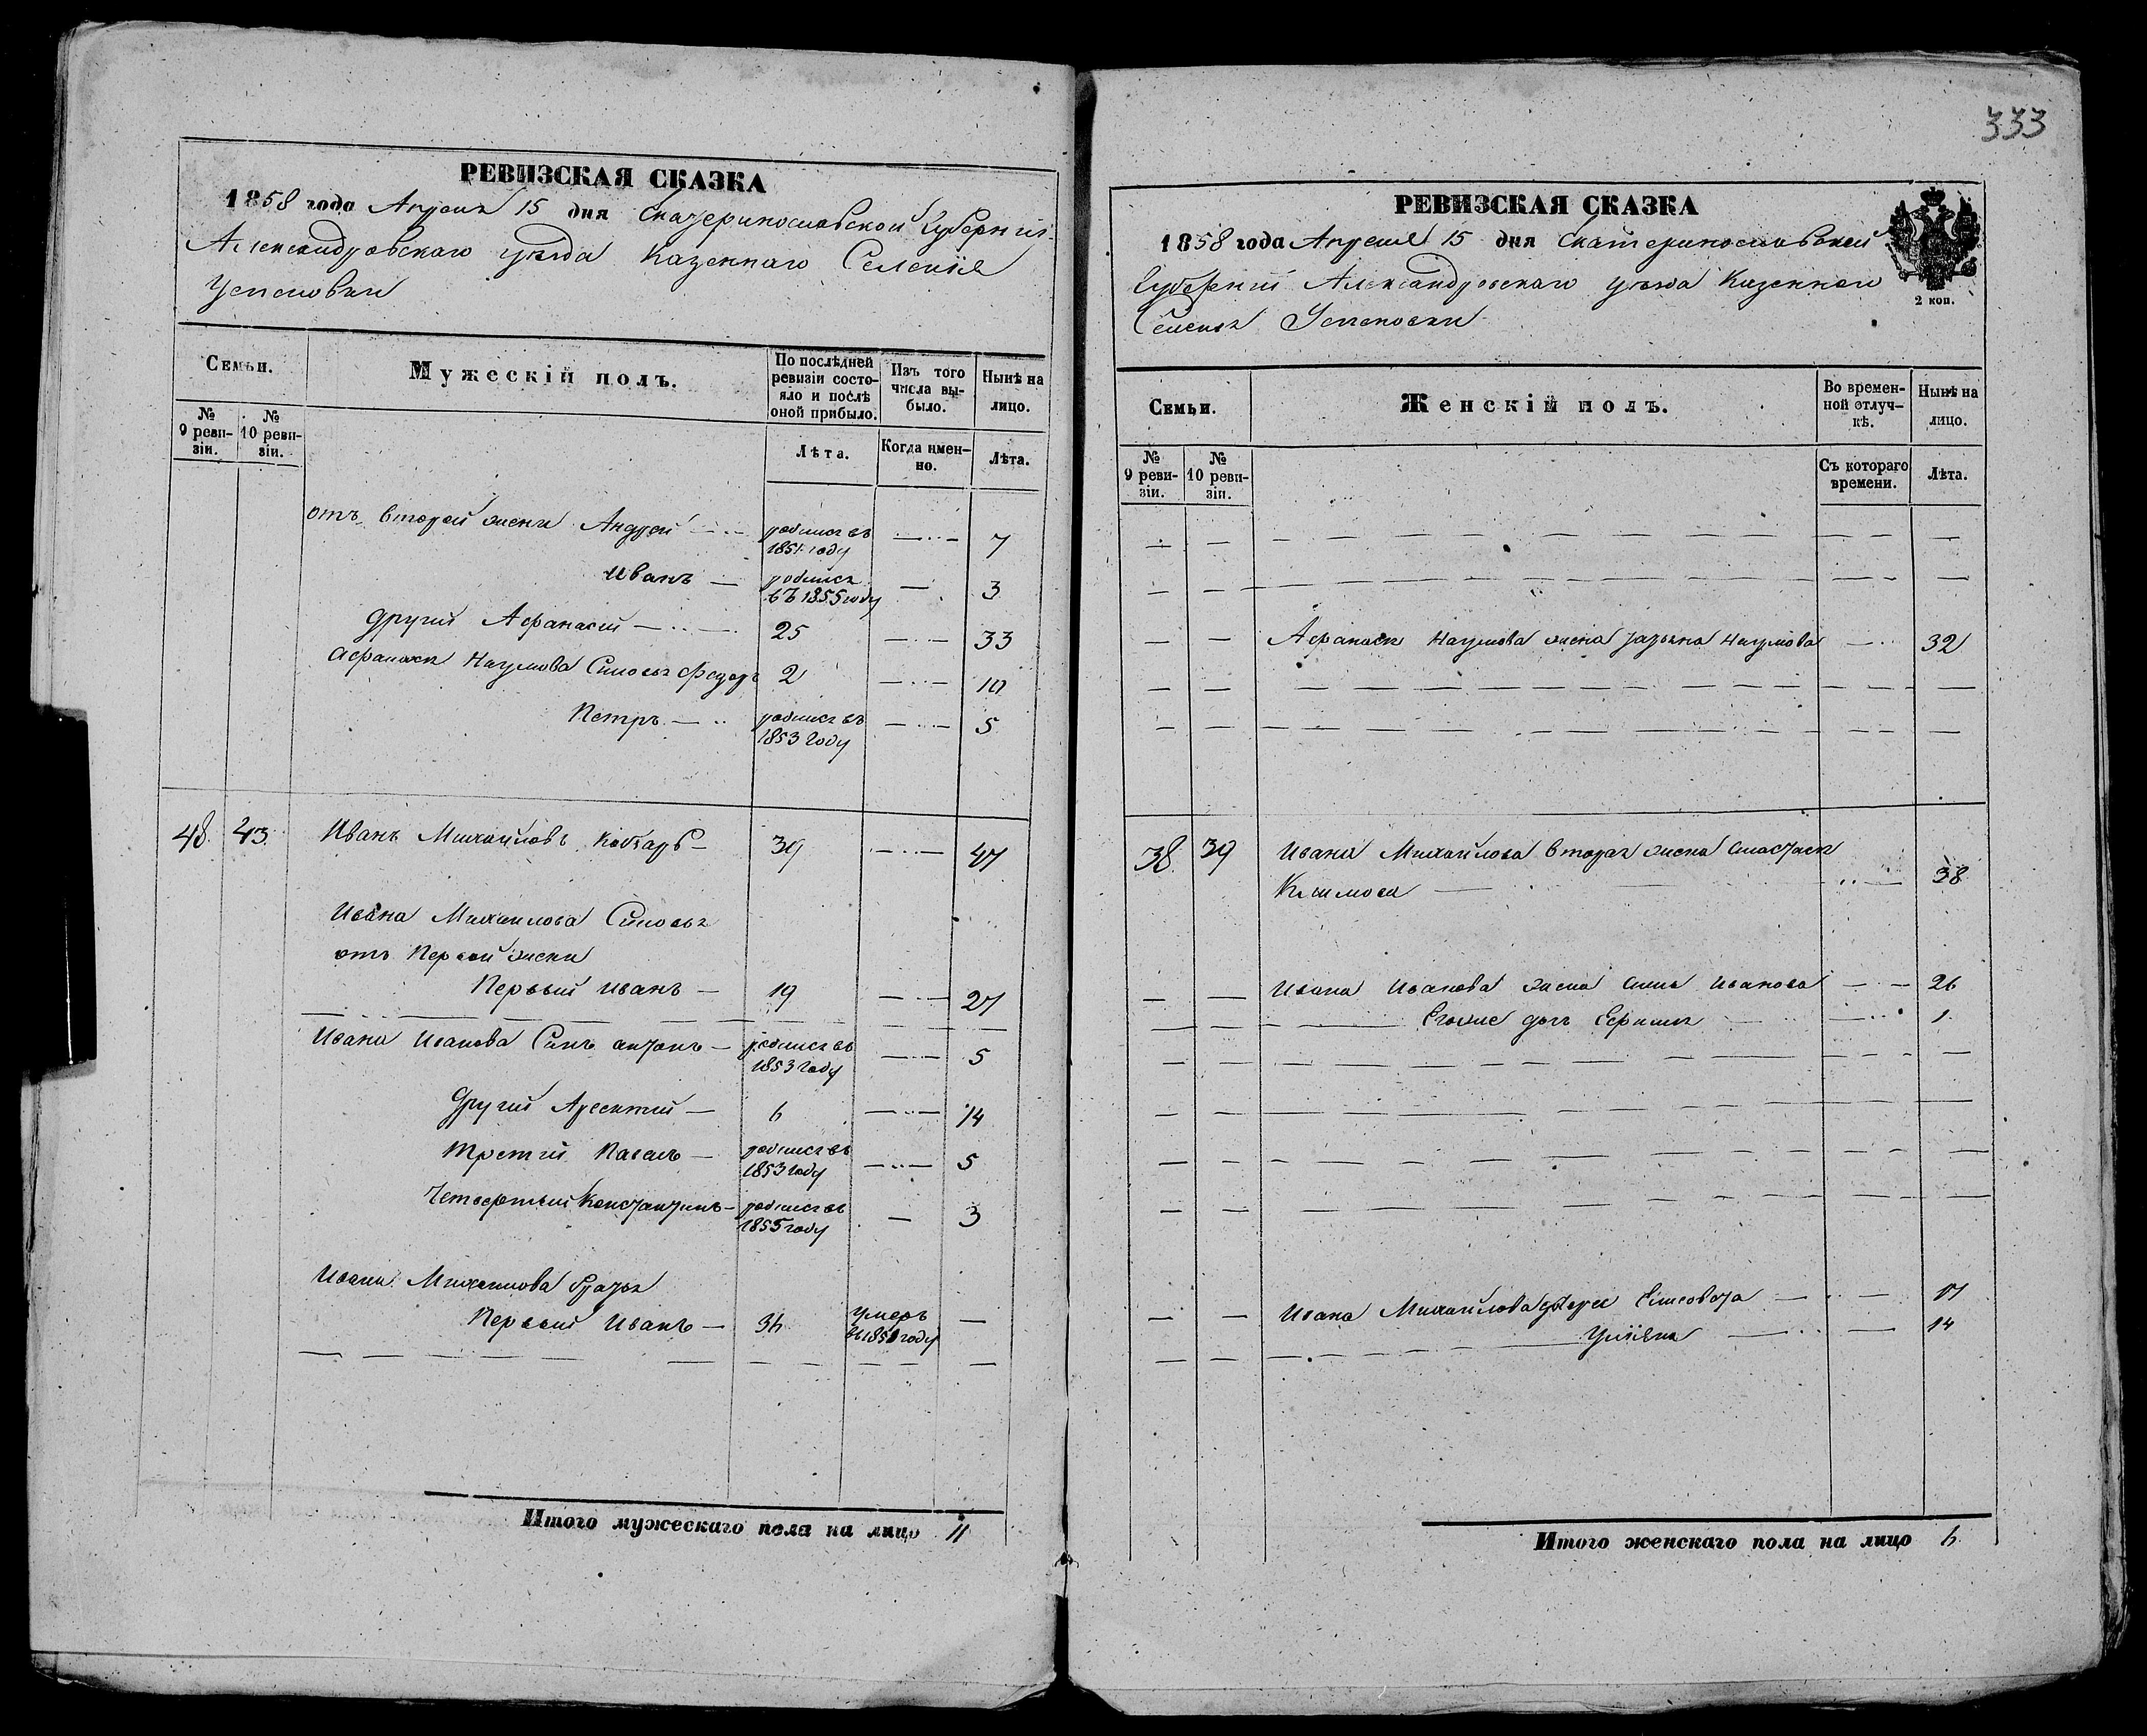 333
РЕВИЗСКАЯ СКАЗКА
1858 года Апреля 15 дня Екатеринославской Губернии
Александровскаго уезда Казеннаго Селения
Успеновки
Семьи.
Мужескій полъ.
По послѣдней ревизіи состояло и послѣ оной прибыло.
Изъ того числа выбыло.
Нынѣ на лицо.
№ 9 ревизіи.
№ 10 ревизіи.
Лѣта.
Когда именно.
Лѣта.
отъ второй жены Андрей родился въ 1851 году 7
Иванъ родился въ 1855 году 3
другий Афанасий 25 33
Афанасия Наумова Сыновья Федоръ 2 10
Петръ родился въ 1853 году 5
48 43 Иванъ Михайловъ Кобзарь 39 47
Ивана Михайлова Сыновья
отъ Первой жены
Первый Иванъ 19 27
Ивана Иванова Сынъ Антонъ родился въ 1853 году 5
Другий Арсентий 6 14
Третий Павелъ родился въ 1853 году 5
Четвертый Константинъ родился въ 1855 году 3
Ивана Михайлова братья
Первый Иванъ 36 умеръ въ году
Итого мужескаго пола на лицо 11
РЕВИЗСКАЯ СКАЗКА
1858 года Апреля 15 дня Екатеринославской
Губернии Александровскаго уезда Казенной
Селения Успеновки
2 коп.
Семьи.
Женскій полъ.
Во временной отлучкѣ.
Нынѣ на лицо.
№ 9 ревизіи.
№ 10 ревизіи.
Съ котораго времени.
Лѣта.
Афанасия Наумова жена Наумова 32
38 39 Ивана Михайлова вторая жена Анастасия
Климова 38
Ивана Иванова жена Анна Иванова 26
Егоже дочь 1
Ивана Михайлова дочери Елисовета 17
Улияна 14
Итого женскаго пола на лицо 6